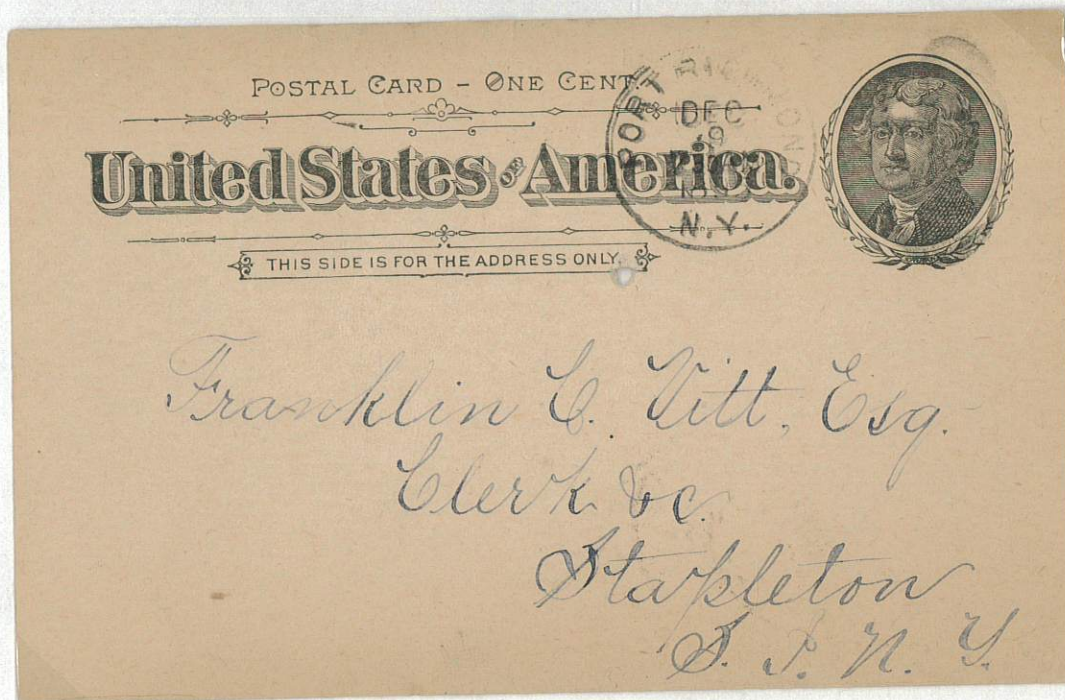 POSTAL CARD - ONE CENT.
United States of America.
THIS SIDE IS FOR THE ADDRESS ONLY.
PORT RICHMOND
DEC
9
N.Y.
Franklin C. Vitt, Esq.
Clerk &c.
Stapleton
S. I. N. Y.